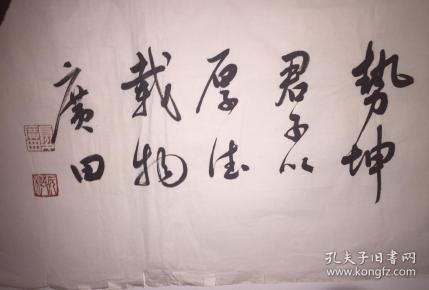 势坤
君子以
厚德
載物
廣田
孔夫子旧书网
www.kongfz.com